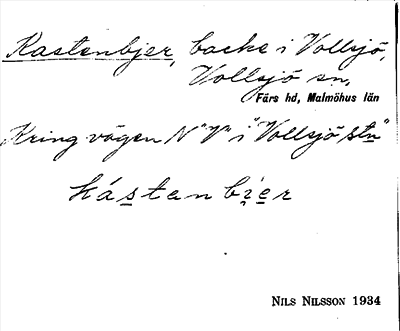 Kastenbjer, backe i Vollsjö,
Vollsjö sn,
Färs hd, Malmöhus län
Kring vägen N"V" i "Vollsjö stn"
kástenbi̯er
NILS NILSSON 1934